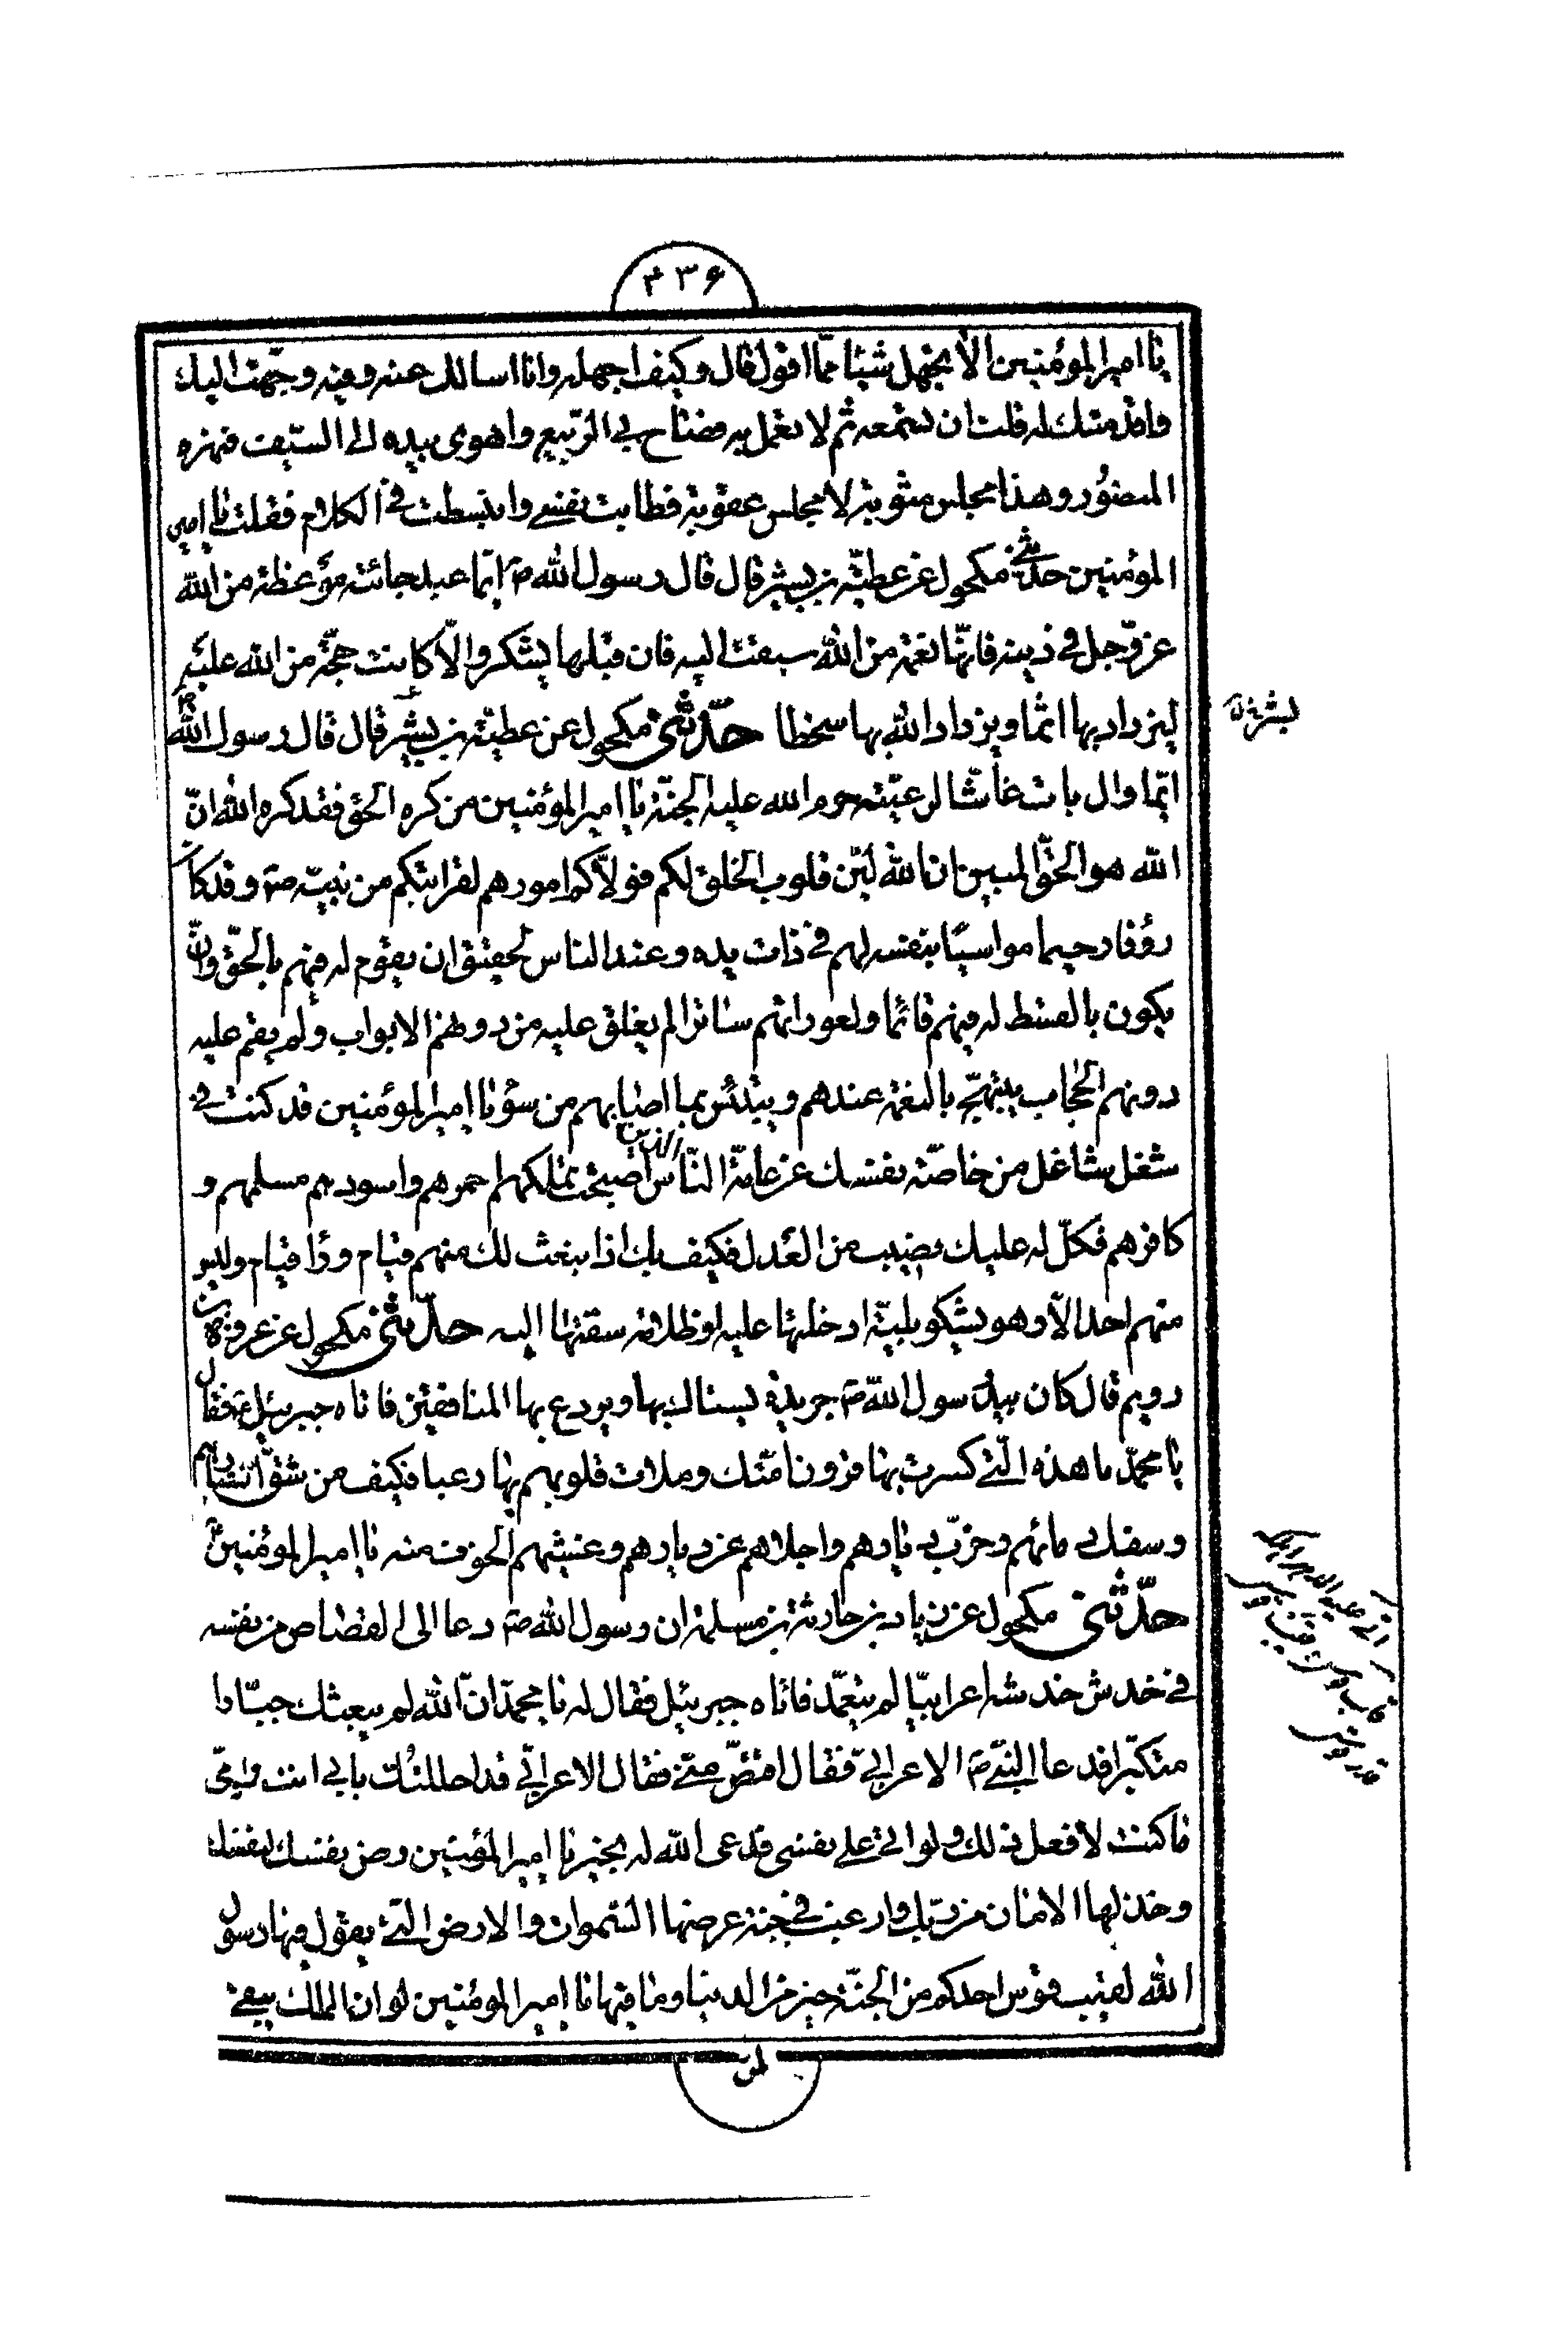 ۴۳۶
يا امير المؤمنين الا تجهل شيئا مما اقول قال وكيف اجهله وانا اسالك عنه وفيه وجهت اليك
واقدمتك له قلت ان تسمعه ثم لا تعمل به فصاح بي الربيع واهوى بيده الى السيف فنهره
المنصور وهذا مجلس مثوبة لا مجلس عقوبة فطابت نفسي وانبسطت في الكلام فقلت يا امير
المؤمنين حدثني مكحول عن عطية بن بشر قال قال رسول الله ص ايما عبد جائته موعظة من الله
عز وجل في دينه فانها نعمة من الله سيقت اليه فان قبلها بشكر والا كانت حجة من الله عليه
ليزداد بها اثما ويزداد الله بها سخطا حدثني مكحول عن عطية بن بشر قال قال رسول الله ص
ايما وال بات غاشا لرعيته حرم الله عليه الجنة يا امير المؤمنين من كره الحق فقد كره الله ان
الله هو الحق المبين ان الله لين قلوب الخلق لكم فولاكم امورهم لقرابتكم من نبيه ص وقد كان
رؤفا رحيما مواسيا بنفسه لهم في ذات يده وعند الناس لحقيق ان يقوم له فيهم بالحق وان
يكون بالقسط له فيهم قائما ولعوراتهم ساترا لم يغلق عليه من دونهم الابواب ولم يقم عليه
دونهم الحجاب يبتهج بالنعمة عندهم ويبتئس بما اصابهم من سوء يا امير المؤمنين قد كنت في
شغل شاغل من خاصة نفسك عن عامة الناس الذين اصبحت تملكهم احمرهم واسودهم مسلمهم و
كافرهم فكل له عليك نصيب من العدل فكيف بك اذا ينعث لك منهم قيام وراء قيام وليس
منهم احد الا وهو يشكو بلية ادخلتها عليه او ظلامة سقتها اليه حدثني مكحول عن عروة بن
رويم قال كان بيد رسول الله ص جريدة يستاك بها ويردع بها المنافقين فاتاه جبرئيل ع فقال
يا محمد ما هذه التي كسرت بها قرون امتك وملات قلوبهم بها رعبا فكيف من شق ابشارهم
وسفك دمائهم وخرب ديارهم واجلاهم عن ديارهم وغشيهم الخوف منه يا امير المؤمنين
حدثني مكحول عن زياد بن حارثة بن مسلمة ان رسول الله ص دعا الى القصاص من نفسه
في خدش خدشه اعرابيا لم يتعمد فاتاه جبرئيل فقال له يا محمد ان الله لم يبعثك جبارا
متكبرا فدعا النبي ص الاعرابي فقال اقتص مني فقال الاعرابي قد احللتك بابي انت وامي
ما كنت لافعل ذلك ولو اتى على نفسي فدعى الله له بخير يا امير المؤمنين رض نفسك لنفسك
وخذ لها الامان من ربك وارغب في جنة عرضها السموات والارض التي يقول فيها رسول
الله لقيب قوس احدكم من الجنة خير من الدنيا وما فيها يا امير المؤمنين لو ان الملك بقي
لمن